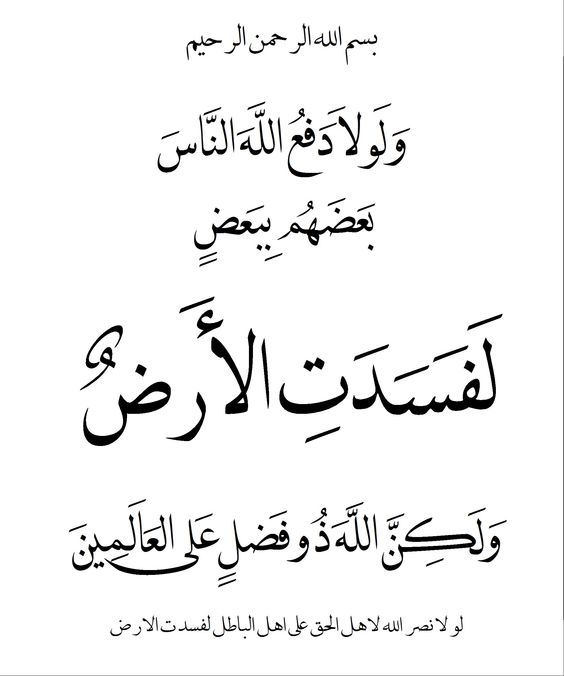 بسم الله الرحمن الرحيم
وَلَولاَ دَفعُ اللَّهَ النَّاسَ
بَعَضَهُمِ بِبَعَضٍ
لَفَسَدَتِ الأَرضُ
وَلَكِنَّ اللَّهَ ذُو فَضلٍ عَلى العَالَمِينَ
لولا نصر الله لاهل الحق على اهل الباطل لفسدت الارض